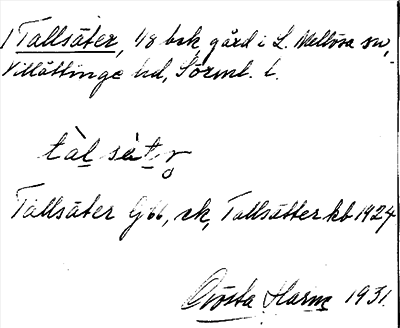 Tallsäter, 1/8 bsk, gård i L. Mellösa sn,
Villåttinge hd, Sörml. l.
tàl sèt r
Tallsäter Gbl, sk, Tallsätter kb 1924
Gösta Harm 1931.